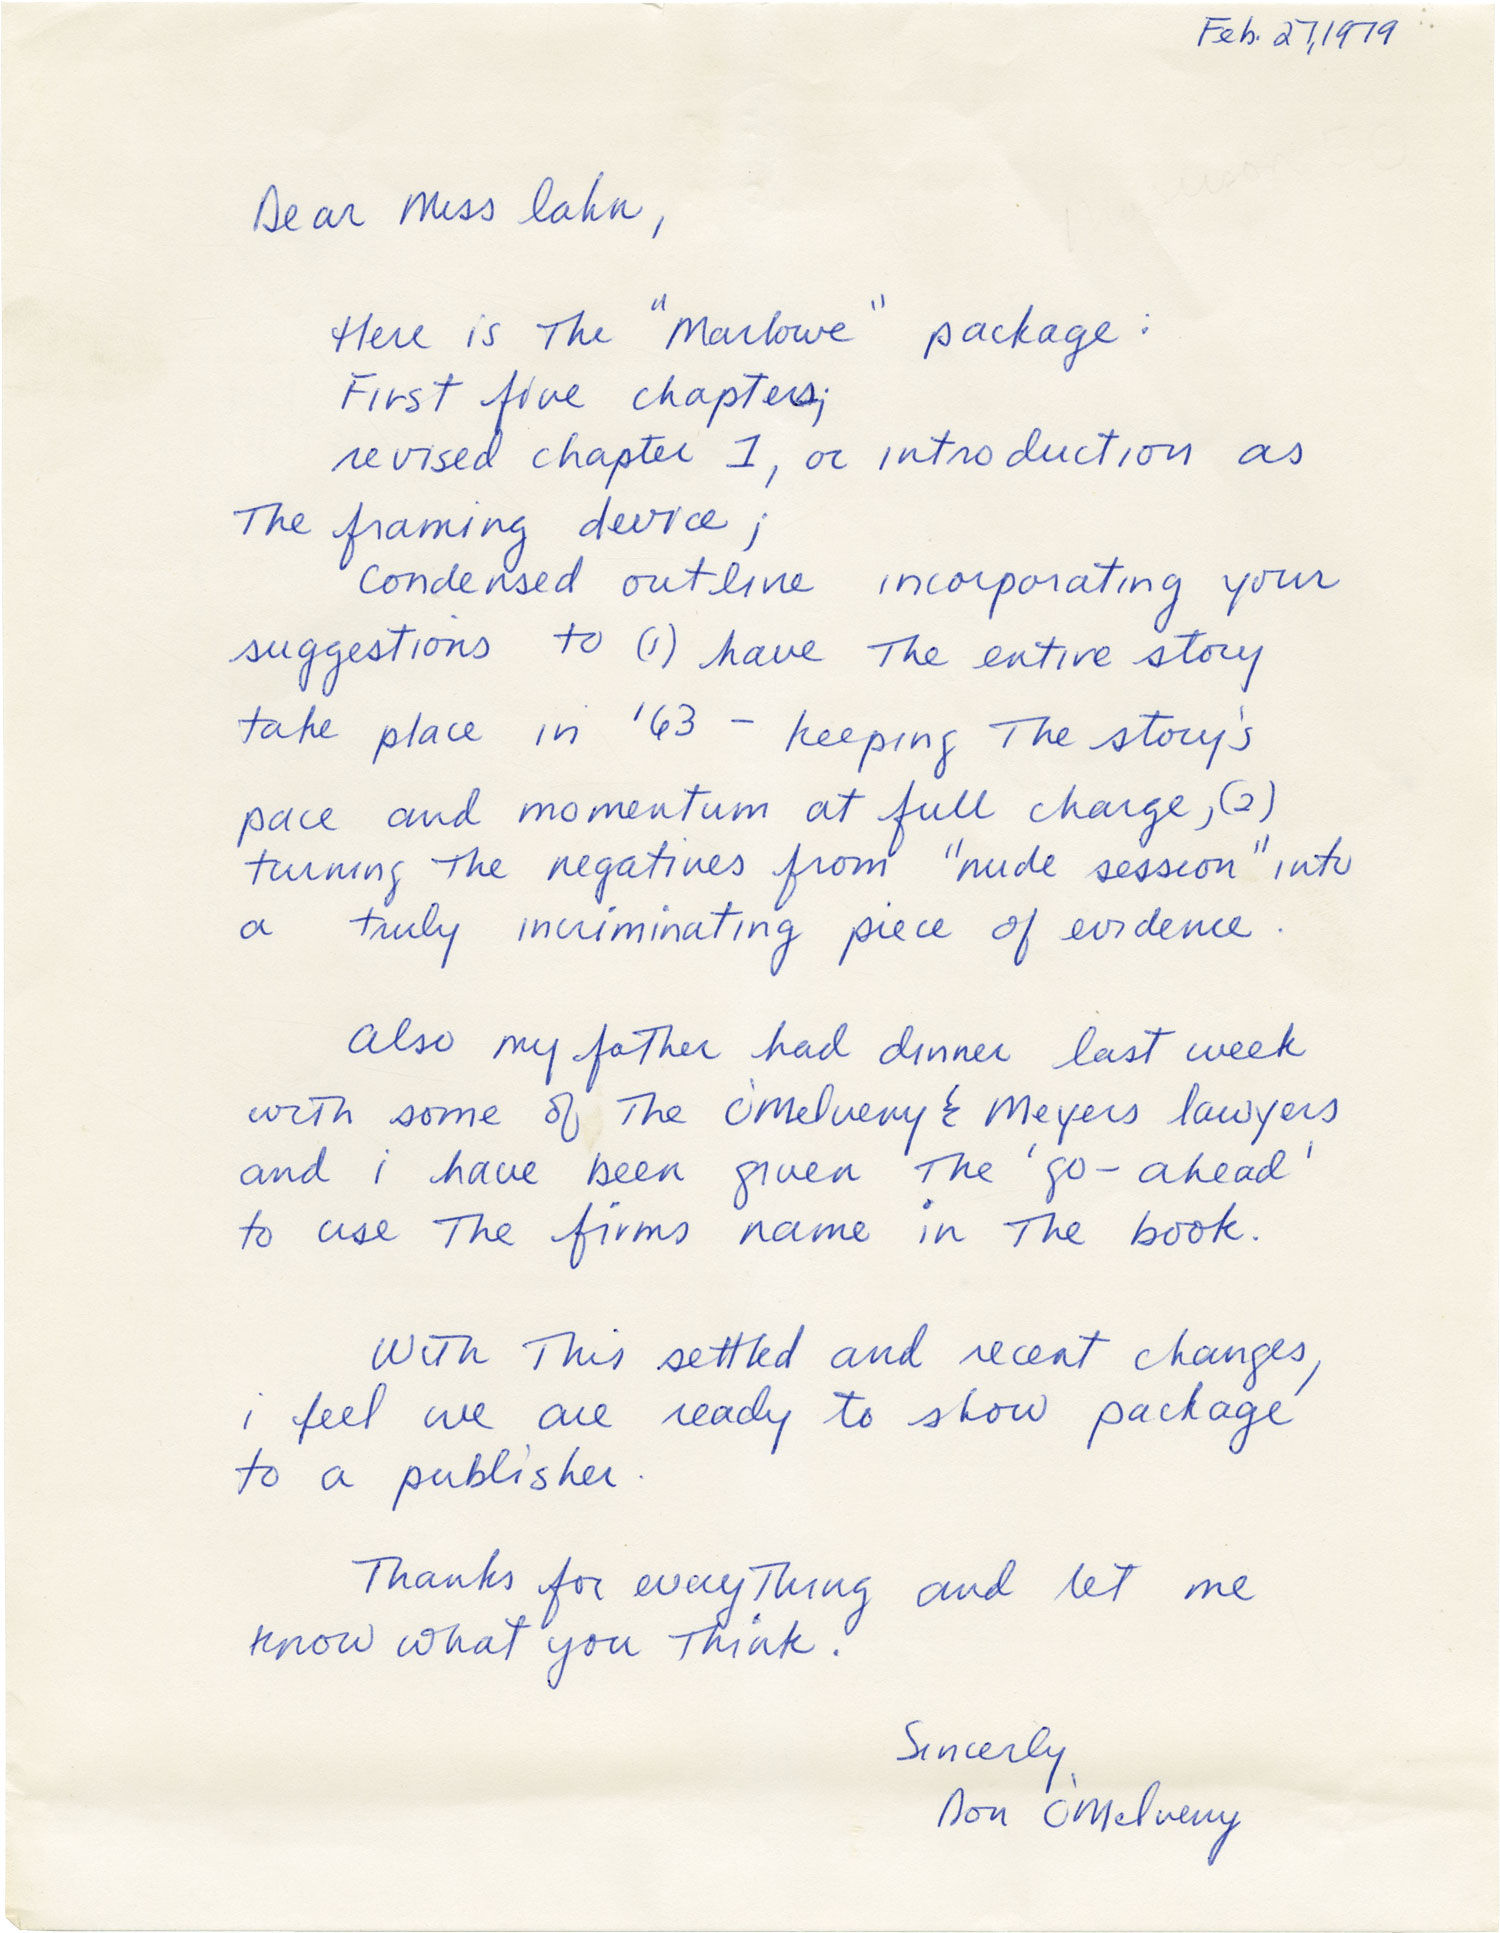 Feb. 27, 1979
Dear Miss Cahn,
Here is The "Marlowe" package:
First five chapters;
revised chapter 1, or introduction as
The framing device;
Condensed outline incorporating your
suggestions to (1) have The entire story
take place in '63 - keeping The story's
pace and momentum at full charge, (2)
turning The negatives from "nude session" into
a truly incriminating piece of evidence.
Also my father had dinner last week
with some of The O'Melveny & Meyers lawyers
and i have been given The 'go-ahead'
to use The firms name in The book.
With This settled and recent changes,
i feel we are ready to show package
to a publisher.
Thanks for everyThing and let me
know what you Think.
Sincerly,
Don O'Melveny